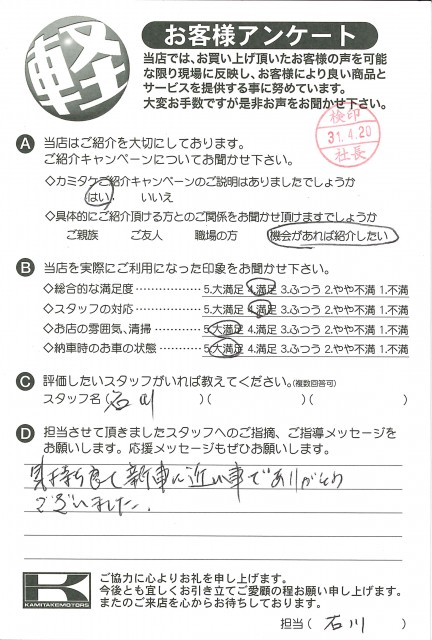 軽
お客様アンケート
当店では、お買い上げ頂いたお客様の声を可能
な限り現場に反映し、お客様により良い商品と
サービスを提供する事に努めています。
大変お手数ですが是非お声をお聞かせ下さい。
検印
31.4.20
社長
A 当店はご紹介を大切にしております。
ご紹介キャンペーンについてお聞かせ下さい。
◇カミタケご紹介キャンペーンのご説明はありましたでしょうか
はい・ いいえ
◇具体的にご紹介頂ける方とのご関係をお聞かせ頂けますでしょうか
ご親族 ご友人 職場の方 機会があれば紹介したい
B 当店を実際にご利用になった印象をお聞かせ下さい。
◇総合的な満足度 ‥‥‥‥‥‥ 5.大満足 4.満足 3.ふつう 2.やや不満 1.不満
◇スタッフの対応 ‥‥‥‥‥‥ 5.大満足 4.満足 3.ふつう 2.やや不満 1.不満
◇お店の雰囲気、清掃 ‥‥‥‥ 5.大満足 4.満足 3.ふつう 2.やや不満 1.不満
◇納車時のお車の状態 ‥‥‥‥ 5.大満足 4.満足 3.ふつう 2.やや不満 1.不満
C 評価したいスタッフがいれば教えてください。(複数回答可)
スタッフ名(石川 )( )( )
D 担当させて頂きましたスタッフへのご指摘、ご指導メッセージを
お願いします。応援メッセージもぜひお願いします。
気持ち良く新車に近い車でありがとう
ございました.
K
KAMITAKEMOTORS
ご協力に心よりお礼を申し上げます。
今後とも宜しくお引き立てご愛顧の程お願い申し上げます。
またのご来店を心からお待ちしております。
担当( 石川 )